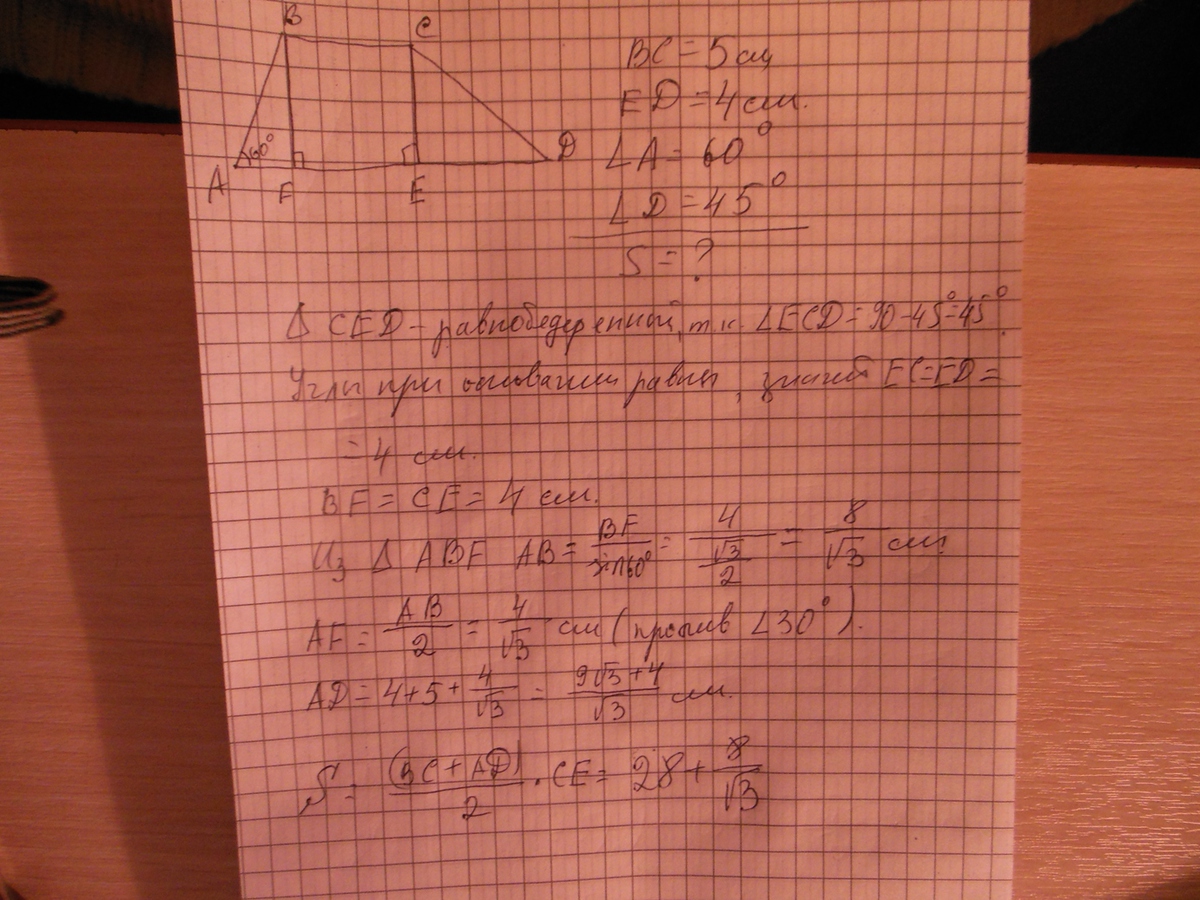 B C
60°
A F E D
BC = 5 см
ED = 4 см.
∠A = 60°
∠D = 45°
S = ?
Δ CED – равнобедеренной, т.к. ∠ECD = 90 – 45° = 45°.
Углы при основании равны, значит EC = ED =
= 4 см.
BF = CE = 4 см.
Из Δ ABF AB = BF/sin60° = 4/(√3/2) = 8/√3 см
AF = AB/2 = 4/√3 см (против ∠30°).
AD = 4 + 5 + 4/√3 = (9√3 + 4)/√3 см.
S = (BC + AD)/2 · CE = 28 + 8/√3